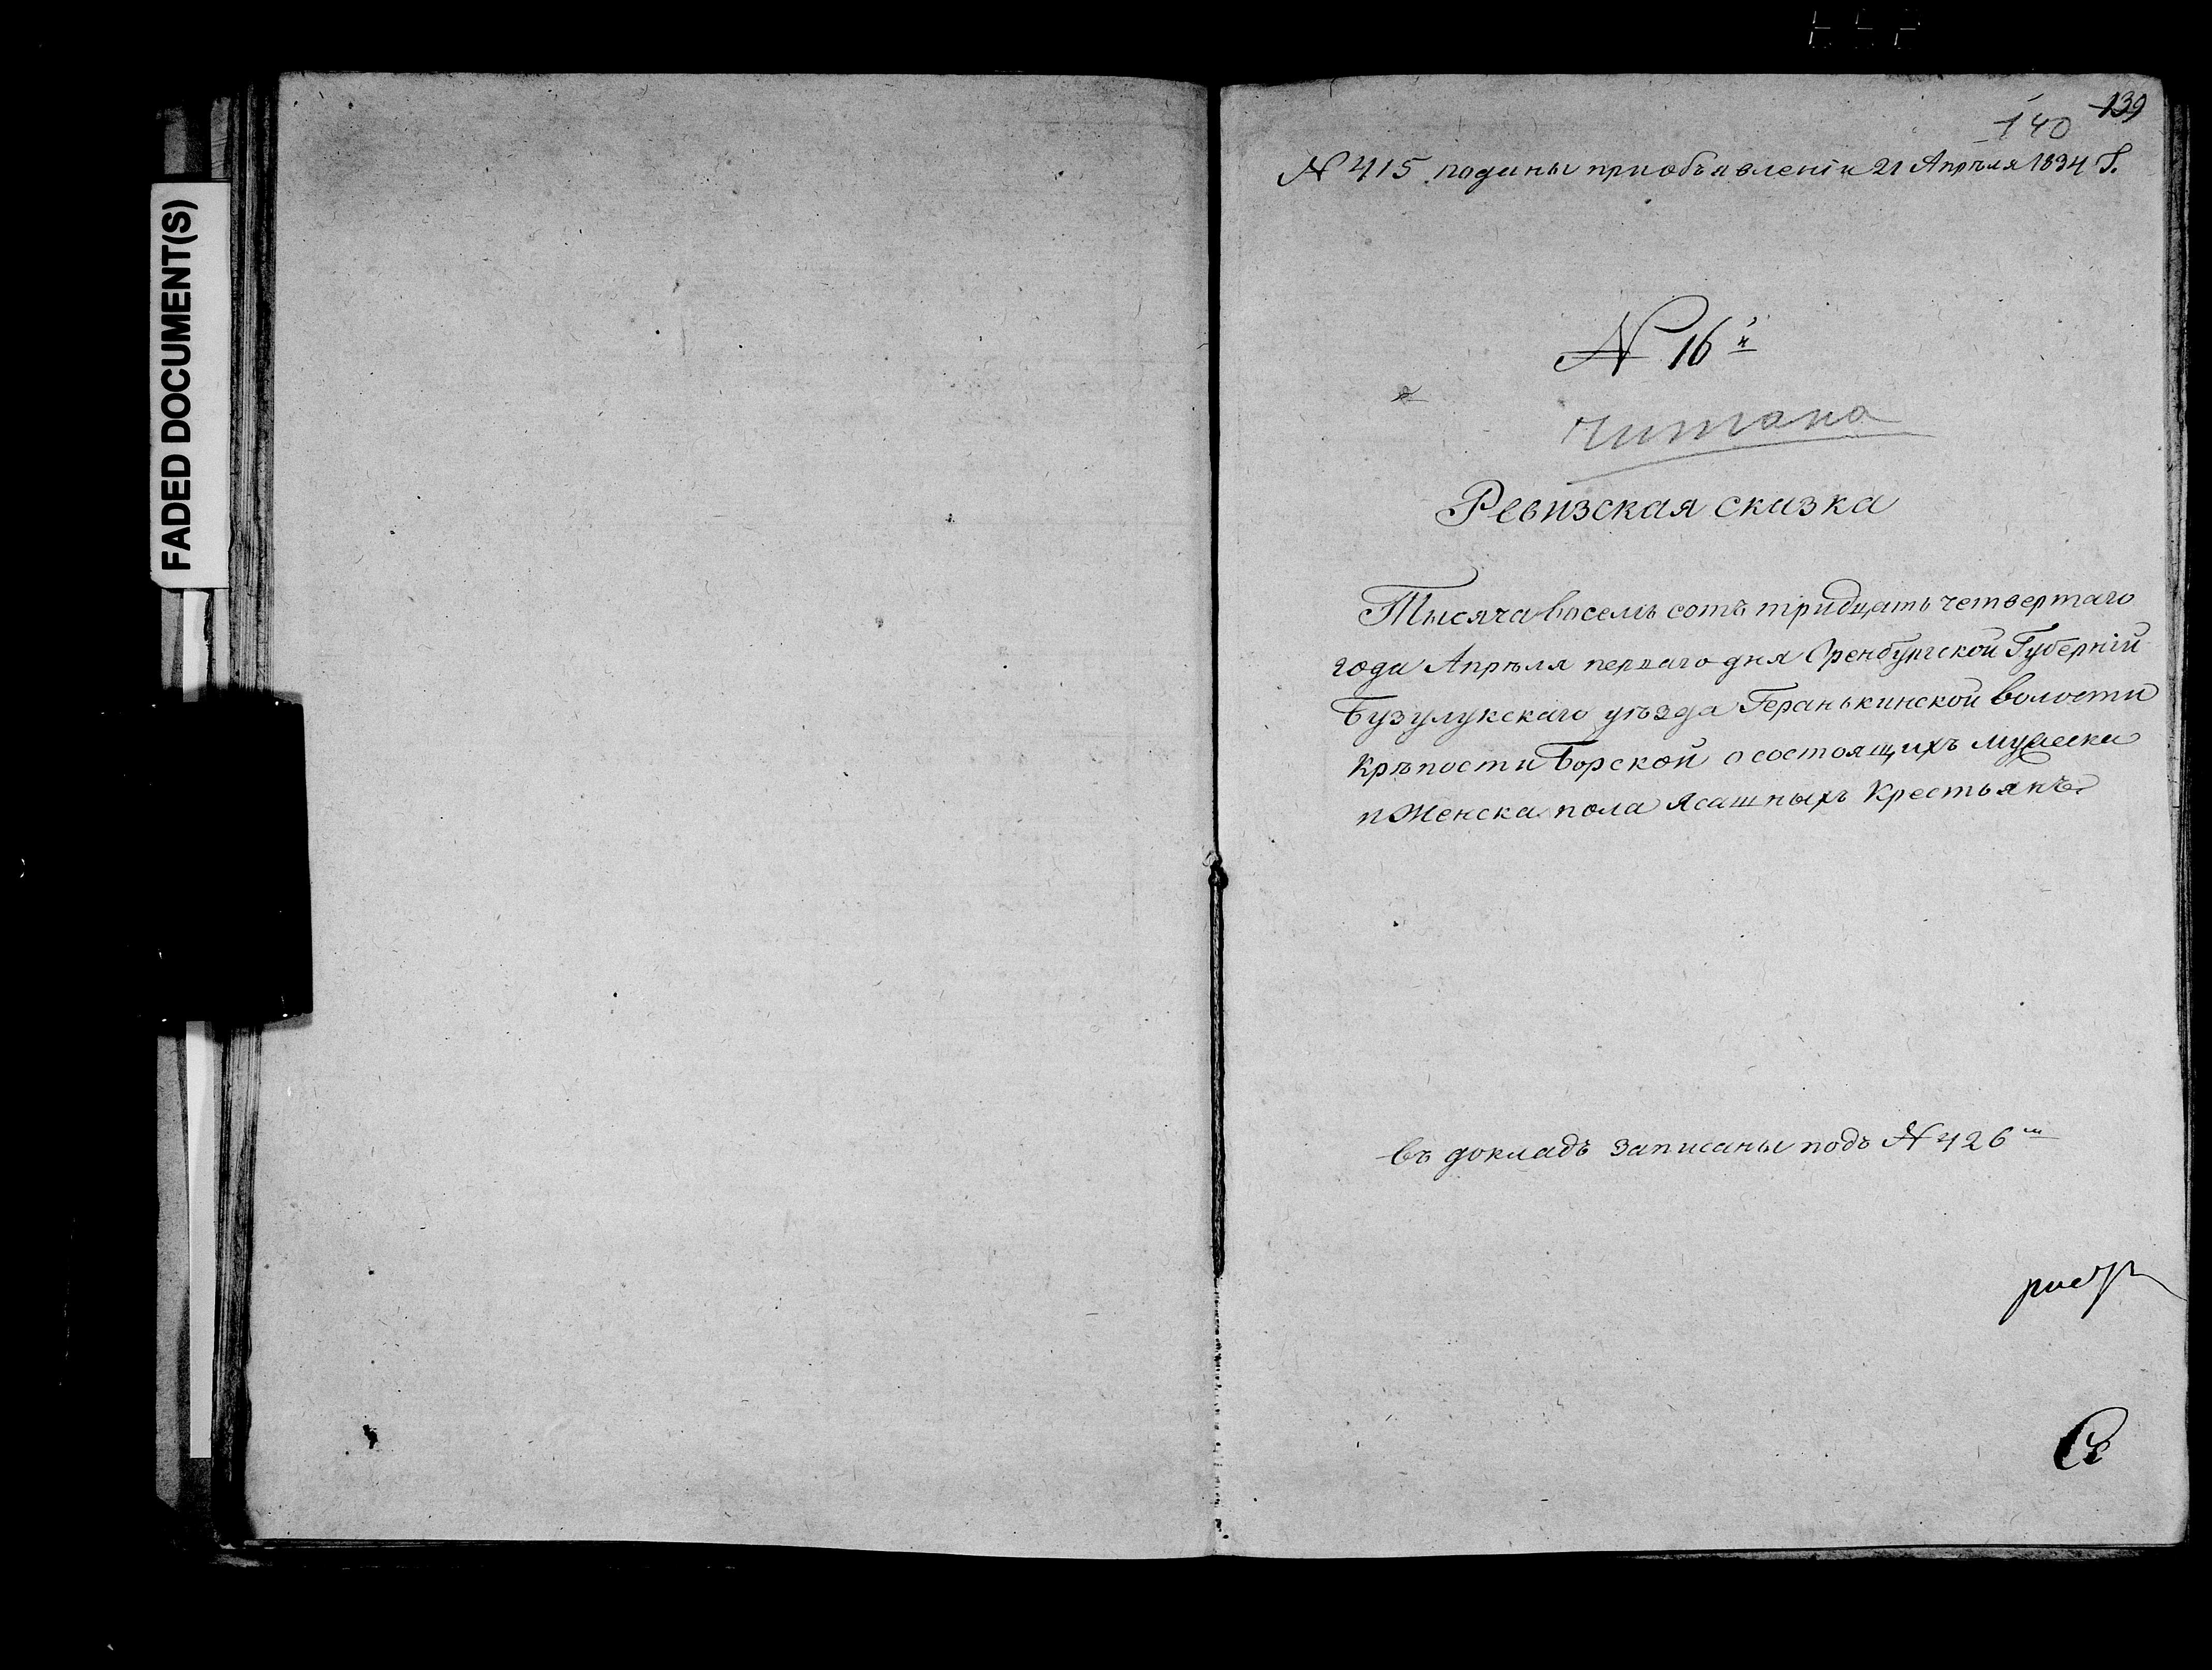 FADED DOCUMENT(S)
139
140
№ 415 поданы при объявленіи 21 Апрѣля 1834 Г.
№ 16й
читана
Ревизская сказка
Тысяча восемь сотъ тридцать четвертаго
года Апрѣля перваго дня Оренбургской Губерніи
Бузулукскаго уѣзда Геранькинской волости
Крѣпости Борской о состоящихъ мужеска
и Женска пола Ясашныхъ Крестьянъ
въ докладъ записаны подъ № 426м